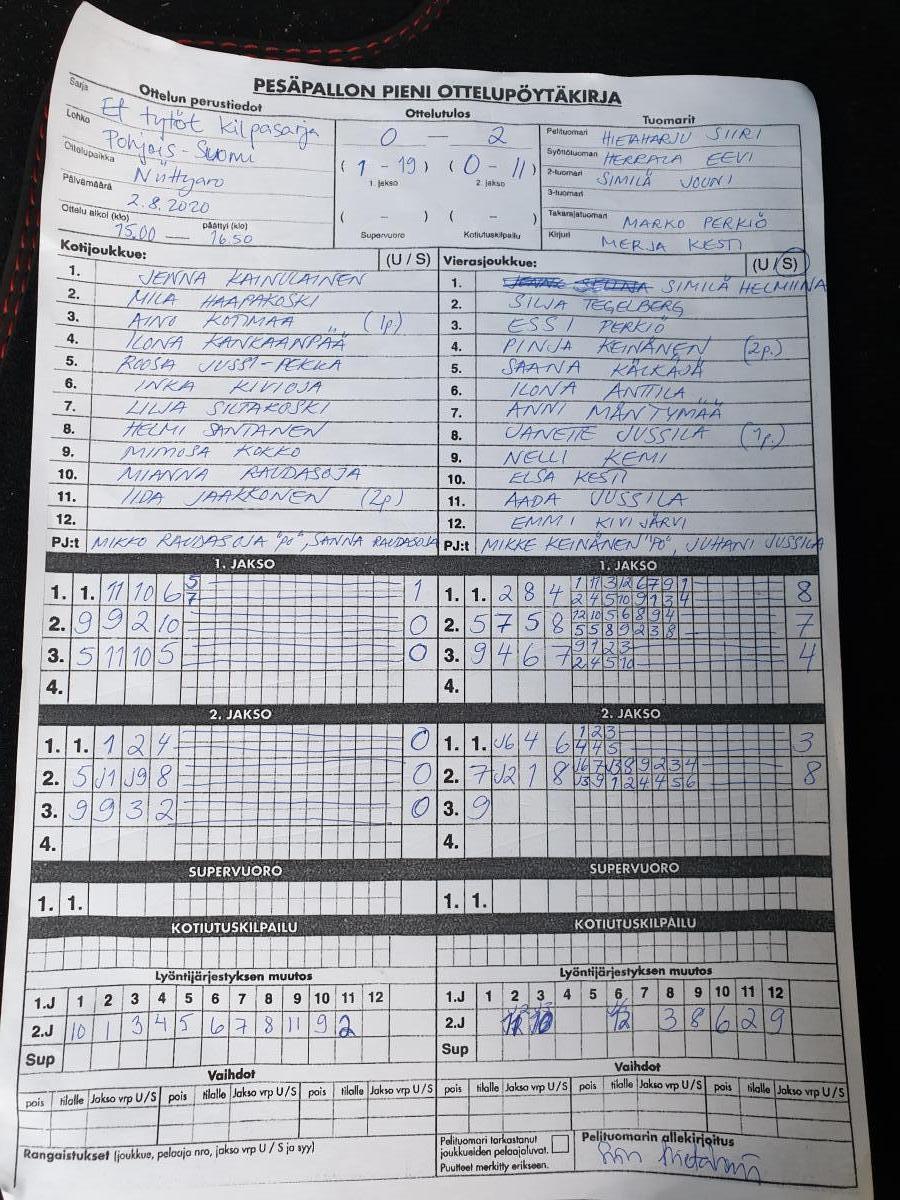 PESÄPALLON PIENI OTTELUPÖYTÄKIRJA
Ottelun perustiedot
Sarja Et tytöt kilpasarja
Lohko Pohjois-Suomi
Ottelupaikka Niittyaro
Päivämäärä 2.8.2020
Ottelu alkoi (klo) päättyi (klo)
15.00 — 16.50
Ottelutulos
0 — 2
(1 - 19) (0 - 11)
1. jakso 2. jakso
( - ) ( - )
Supervuoro Kotiutuskilpailu
Tuomarit
Pelituomari HIETAHARJU SIIRI
Syöttötuomari HERRALA EEVI
2-tuomari SIMILÄ JOUNI
3-tuomari
Takarajatuomari MARKO PERKIÖ
Kirjuri MERJA KESTI
Kotijoukkue: (U / S)
1. JENNA KAINULAINEN
2. MILA HAAPAKOSKI
3. AINO KOTIMAA (1p)
4. ILONA KANKAANPÄÄ
5. ROOSA JUSSI-PEKKA
6. INKA KIVIOJA
7. LILJA SILTAKOSKI
8. HELMI SANTANEN
9. MIMOSA KOKKO
10. MIANNA RAUDASOJA
11. IIDA JAAKKONEN (2p)
12.
PJ:t MIKKO RAUDASOJA "PO", SANNA RAUDASOJA
Vierasjoukkue: (U / S)
1. SIMILÄ HELMIINA
2. SILJA TEGELBERG
3. ESSI PERKIÖ
4. PINJA KEINÄNEN (2p.)
5. SAANA KÄLKÄJÄ
6. ILONA ANTTILA
7. ANNI MÄNTYMÄÄ
8. JANETTE JUSSILA (1p.)
9. NELLI KEMI
10. ELSA KESTI
11. AADA JUSSILA
12. EMMI KIVIJÄRVI
PJ:t MIKKE KEINÄNEN "PO", JUHANI JUSSILA
1. JAKSO
1. 1. 11 10 6 5 1
7
2. 9 9 2 10 0
3. 5 11 10 5 0
4.
1. JAKSO
1. 1. 2 8 4 1 11 3 12 6 7 9 1 8
2 4 5 10 9 1 3 4
2. 5 7 5 8 12 10 5 6 8 9 4 7
5 5 8 9 2 3 8
3. 9 4 6 7 9 1 2 3 4
2 4 5 10
4.
2. JAKSO
1. 1. 1 2 4 0
2. 5 J1 J9 8 0
3. 9 9 3 2 0
4.
2. JAKSO
1. 1. J6 4 6 1 2 3 3
4 4 5
2. 7 J2 1 8 J6 7 J3 8 9 2 3 4 8
J3 9 1 2 4 4 5 6
3. 9
4.
SUPERVUORO
1. 1.
SUPERVUORO
1. 1.
KOTIUTUSKILPAILU
KOTIUTUSKILPAILU
Lyöntijärjestyksen muutos
1.J 1 2 3 4 5 6 7 8 9 10 11 12
2.J 10 1 3 4 5 6 7 8 11 9 2
Sup
Lyöntijärjestyksen muutos
1.J 1 2 3 4 5 6 7 8 9 10 11 12
2.J 12 3 8 6 2 9
Sup
Vaihdot
pois tilalle Jakso vrp U / S pois tilalle Jakso vrp U / S pois tilalle Jakso vrp U / S
Vaihdot
pois tilalle Jakso vrp U / S pois tilalle Jakso vrp U / S pois tilalle Jakso vrp U / S
Rangaistukset (joukkue, pelaaja nro, jakso vrp U / S ja syy)
Pelituomari tarkastanut
joukkueiden pelaajaluvat.
Puutteet merkitty erikseen.
Pelituomarin allekirjoitus